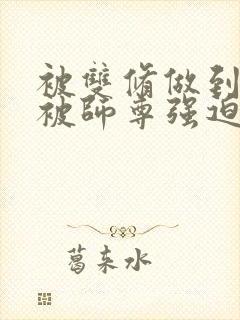 被雙脩做到
被師尊强迫
葛来水